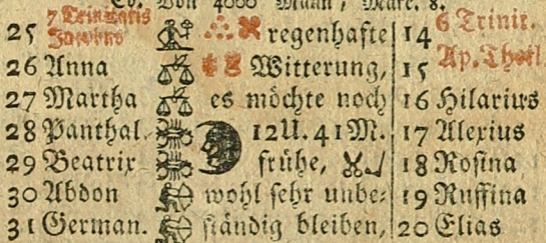 Ev. Von 4000 Mann, Marc. 8.
25 7 Trinitatis Jacobus regenhafte 14 6 Trinit.
26 Anna Witterung, 15 Ap. Theil
27 Martha es möchte noch 16 Hilarius
28 Panthal. 12U. 41M. 17 Alexius
29 Beatrix frühe, 18 Rosina
30 Abdon wohl sehr unbe- 19 Ruffina
31 German. ständig bleiben, 20 Elias